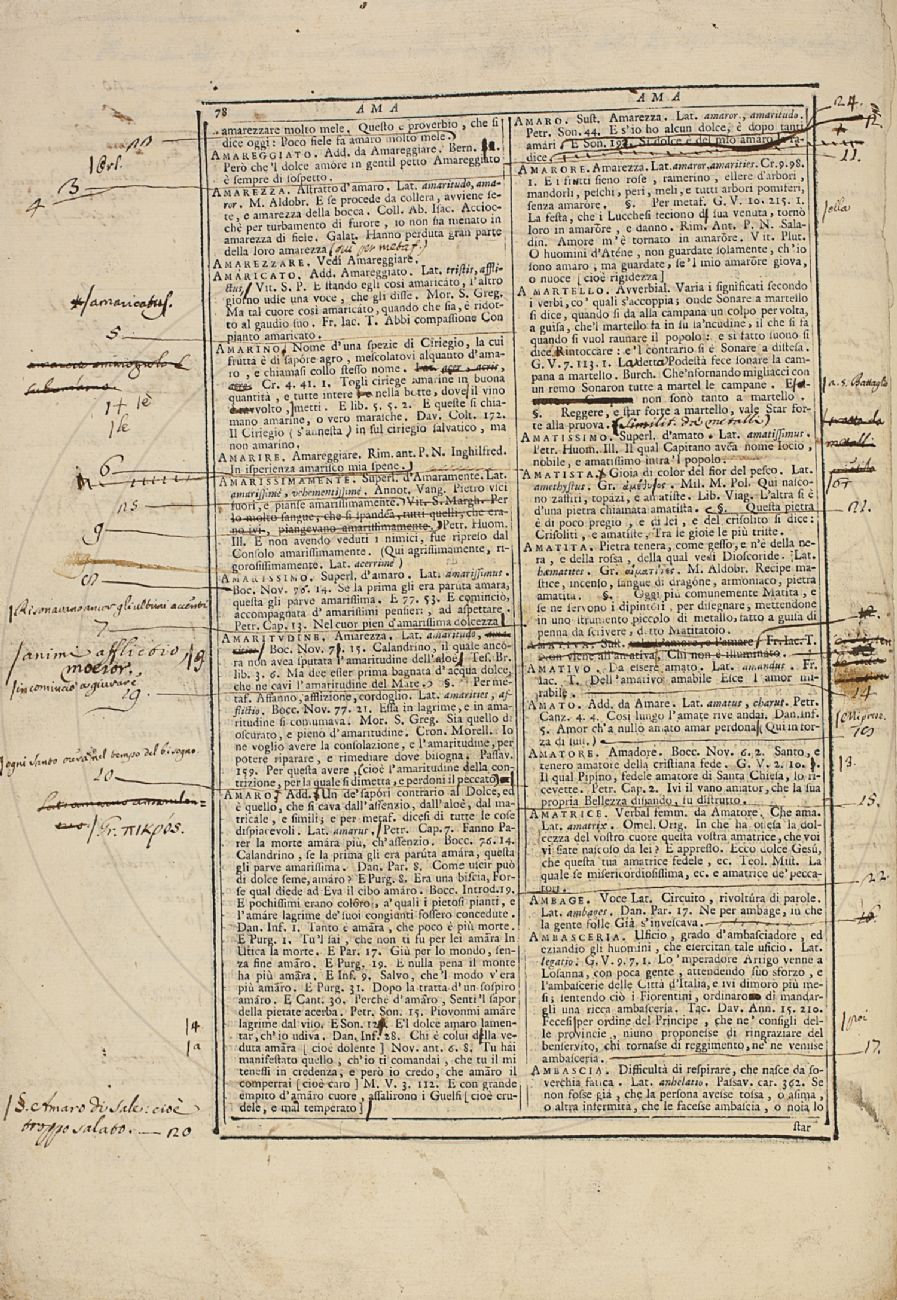 78 AMA
AMA
amarezzare molto mele. Questo è proverbio, che si
dice oggi: Poco fiele fa amaro molto mele.
AMAREGGIATO. Add. da Amareggiare. Bern.
Però che'l dolce amòre in gentil petto Amareggiato
è sempre di sospetto.
AMAREZZA. Astratto d'amaro. Lat. amaritudo, ama-
ror. M. Aldobr. E se procede da collera, avviene se-
te, e amarezza della bocca. Coll. Ab. Isac. Accioc-
chè per turbamento di furore, io non sia menato in
amarezza di fiele. Galat. Hanno perduta gran parte
della loro amarezza (qui per metaf.)
AMAREZZARE. Vedi Amareggiare.
AMARICATO. Add. Amareggiato. Lat. tristis, affli-
ctus, Vit. S. P. E stando egli così amaricàto, l'altro
giorno udìe una voce, che gli disse. Mor. S. Greg.
Ma tal cuore così amaricàto, quando che sia, è ridot-
to al gaudio suo. Fr. Iac. T. Abbi compassione Con
pianto amaricato.
AMARINO. Nome d'una spezie di Ciriegio, la cui
frutta è di sapòre agro, mescolatovi alquanto d'ama-
ro, e chiamasi collo stesso nome.
Cr. 4. 41. 1. Togli ciriege amarine in buona
quantità, e tutte intere nella botte, dove il vino
volto, metti. E lib. 5. 5. 2. E queste si chia-
mano amarine, o vero marasche. Dav. Colt. 172.
Il Ciriegio (s'annesta) in sul ciriegio salvatico, ma
non amarino.
AMARIRE. Amareggiare. Rim. ant. P. N. Inghilfred.
In isperienza amarisco mia spene.
AMARISSIMAMENTE. Superl. d'Amaramente. Lat.
amarissimè, vehementissimè. Annot. Vang. Pietro uscì
fuori, e pianse amarissimamente. Vit. S. Margh. Per
lo molto sangue, che si spandea, tutti quelli, che era-
no ivi, piangevano amarissimamente. Petr. Huom.
Ill. E non avendo veduti i nimici, fue ripreso dal
Consolo amarissimamente. (Qui agrissimamente, ri-
gorosissimamente. Lat. acerrimè)
AMARISSIMO. Superl. d'amaro. Lat. amarissimus.
Boc. Nov. 76. 14. Se la prima gli era paruta amara,
questa gli parve amarissima. E 77. 53. E comincio,
accompagnata d'amarissimi pensieri, ad aspettare.
Petr. Cap. 13. Nel cuor pien d'amarissima dolcezza
AMARITUDINE. Amarezza. Lat. amaritudo,
Boc. Nov. 7. 15. Calandrino, il quale ancò-
ra non avea sputata l'amaritudine dell'aloè. Tes. Br.
lib. 3. 6. Ma dee esser prima bagnata d'acqua dolce,
che ne cavi l'amaritudine del Mare. §. Per me-
taf. Affanno, afflizione, cordoglio. Lat. amarities, af-
flictio. Bocc. Nov. 77. 21. Essa in lagrime, e in ama-
ritudine si consumava. Mor. S. Greg. Sia quello dì
oscurato, e pieno d'amaritudine. Cron. Morell. Io
ne voglio avere la consolazione, e l'amaritudine, per
potere riparare, e rimediare dove bisogna. Passav.
159. Per questa avere (cioè l'amaritudine della con-
trizione, per la quale si dimetta, e perdoni il peccato)
AMARO. Add. Un de' sapòri contrario al Dolce, ed
è quello, che si cava dall'assenzio, dall'aloè, dal ma-
tricale, e simili; e per metaf. dicesi di tutte le cose
dispiacevoli. Lat. amarus. Petr. Cap. 7. Fanno Pa-
rer la morte amàra più, ch'assenzio. Bocc. 76. 14.
Calandrino, se la prima gli era parùta amàra, questa
gli parve amarissima. Dan. Par. 8. Come uscir può
di dolce seme, amàro? E Purg. 8. Era una biscia, For-
se qual diede ad Eva il cibo amàro. Bocc. Introd. 19.
E pochissimi erano coloro, a' quali i pietosi pianti, e
l'amàre lagrime de' suoi congiunti fossero concedute.
Dan. Inf. 1. Tanto è amàra, che poco è più morte.
E Purg. 1. Tu'l sai, che non ti fu per lei amàra In
Utica la morte. E Par. 17. Giù per lo mondo, sen-
za fine amàro. E Purg. 19. E nulla pena il monte
ha più amàra. E Inf. 9. Salvo, che'l modo v'era
più amàro. E Purg. 31. Dopo la tratta d'un sospiro
amàro. E Cant. 30. Perchè d'amàro, Sentì'l sapor
della pietate acerba. Petr. Son. 15. Piovonmi amàre
lagrime dal viso. E Son. El dolce amaro lamen-
tar, ch'io udiva. Dan. Inf. 28. Chi è colui della ve-
duta amàra [cioè dolente] Nov. ant. 6. 8. Tu hai
manifestato quello, ch'io ti comandai, che tu il mi
tenessi in credenza, e però io credo, che amàro il
comperrai [cioè caro] M. V. 3. 112. E con grande
empito d'amàro cuore, assalirono i Guelfi [cioè cru-
dele, e mal temperato]
AMARO. Sust. Amarezza. Lat. amaror, amaritudo.
Petr. Son. 44. E s'io ho alcun dolce, è dopo tanti
amàri E Son. 19. Sì dolce è del mio amaro la ra-
dice
AMARORE. Amarezza. Lat. amaror, amarities. Cr. 9. 98.
1. E i frutti sieno rose, ramerino, ellere d'arbori,
mandorli, peschi, peri, meli, e tutti arbori pomiferi,
senza amaròre. §. Per metaf. G. V. 10. 215. 1.
La festa, che i Lucchesi feciono di sua venuta, tornò
loro in amaròre, e danno. Rim. Ant. P. N. Sala-
din. Amore m'è tornato in amaròre. Vit. Plut.
O huomini d'Atène, non guardate solamente, ch'io
sono amaro; ma guardate, se'l mio amaròre giova,
o nuoce [cioè rigidezza]
A MARTELLO. Avverbial. Varia i significati secondo
i verbi, co' quali s'accoppia; onde Sonare a martello
si dice, quando si dà alla campana un colpo per volta,
a guisa, che'l martello fa in su la'ncudine, il che si fa
quando si vuol raunare il popolo: e sì fatto suono si
dice Rintoccare: e'l contrario si è Sonare a distesa.
G. V. 7. 113. 1. Lo detto Podestà fece sonare la cam-
pana a martello. Burch. Che'nfornando migliacci con
un remo Sonaron tutte a martel le campane. E
non sonò tanto a martello.
§. Reggere, e star forte a martello, vale Star for-
te alla pruova. (Similit. da' metalli)
AMATISSIMO. Superl. d'amato. Lat. amatissimus.
Petr. Huom. Ill. Il qual Capitano avea nome Iocio,
nobile, e amatissimo intra'l popolo.
AMATISTA. Gioia di color del fior del pesco. Lat.
amethystus. Gr. ἀμέθυστος. Mil. M. Pol. Qui nasco-
no zaffiri, topazi, e amatiste. Lib. Viag. L'altra si è
d'una pietra chiamata amatista. e §. Questa pietra
è di poco pregio, e di lei, e del crisolito si dice:
Crisoliti, e amatiste, Tra le gioie le più triste.
AMATITA. Pietra tenera, come gesso, e n'è della ne-
ra, e della rossa, della qual vedi Dioscoride. Lat.
hæmatites. Gr. αἱματίτης. M. Aldobr. Recipe ma-
stice, incenso, sangue di dragòne, armoniaco, pietra
amatita. §. Oggi più comunemente Matita, e
se ne servono i dipintori, per disegnare, mettendone
in uno strumento piccolo di metallo, fatto a guisa di
penna da scrivere, detto Matitatoio.
AMATIVA. Sust. Fr. Iac. T.
Non viene all'amativa, Chi non è illuminato.
AMATIVO. Da essere amato. Lat. amandus. Fr.
Iac. T. Dell'amativo amabile Esce l'amor mi-
rabile.
AMATO. Add. da Amare. Lat. amatus, charus. Petr.
Canz. 4. 4. Così lungo l'amate rive andai. Dan. Inf.
5. Amor ch'a nullo amato amar perdona (Qui in for-
za di sust.)
AMATORE. Amadòre. Bocc. Nov. 6. 2. Santo, e
tenero amatore della cristiana fede. G. V. 2. 10.
Il qual Pipino, fedele amatore di Santa Chiesa, lo ri-
cevette. Petr. Cap. 2. Ivi il vano amator, che la sua
propria Bellezza disiando, fu distrutto.
AMATRICE. Verbal femm. da Amatore. Che ama.
Lat. amatrix. Omel. Orig. In che ha offesa la dol-
cezza del vostro cuore questa vostra amatrice, che voi
vi siate nascoso da lei? E appresso. Ecco dolce Gesù,
che questa tua amatrice fedele, ec. Teol. Mist. La
quale se misericordiosissima, ec. e amatrice de' pecca-
tori.
AMBAGE. Voce Lat. Circuito, rivoltùra di parole.
Lat. ambages. Dan. Par. 17. Nè per ambage, in che
la gente folle Già s'invescava.
AMBASCERIA. Uficio, grado d'ambasciadore, ed
eziandio gli huomini, che esercitan tale uficio. Lat.
legatio. G. V. 9. 7. 1. Lo'mperadore Arrigo venne a
Losanna, con poca gente, attendendo suo sforzo, e
l'ambascerie delle Città d'Italia, e ivi dimorò più me-
si; sentendo ciò i Fiorentini, ordinaron di mandar-
gli una ricca ambasceria. Tac. Dav. Ann. 15. 210.
Fecesi per ordine del Principe, che ne' consigli del-
le provincie, niuno proponesse di ringraziare del
benservito, chi tornasse di reggimento, nè ne venisse
ambasceria.
AMBASCIA. Difficultà di respirare, che nasce da so-
verchia fatica. Lat. anhelatio. Passav. car. 362. Se
non fosse già, che la persona avesse tossa, o asima,
o altra infermità, che le facesse ambascia, o noia lo
star
3
4
amaricatus.
5
6
9
7
anime afflictio
moeror.
incominciò a giurare
29
ogni santo
Gr. πικρός.
4
a
§. Amaro di sale: cioè
troppo salato. 20
24.
11.
ella
a. 5. Battaglie
21.
14
15.
22.
16
poi
17.